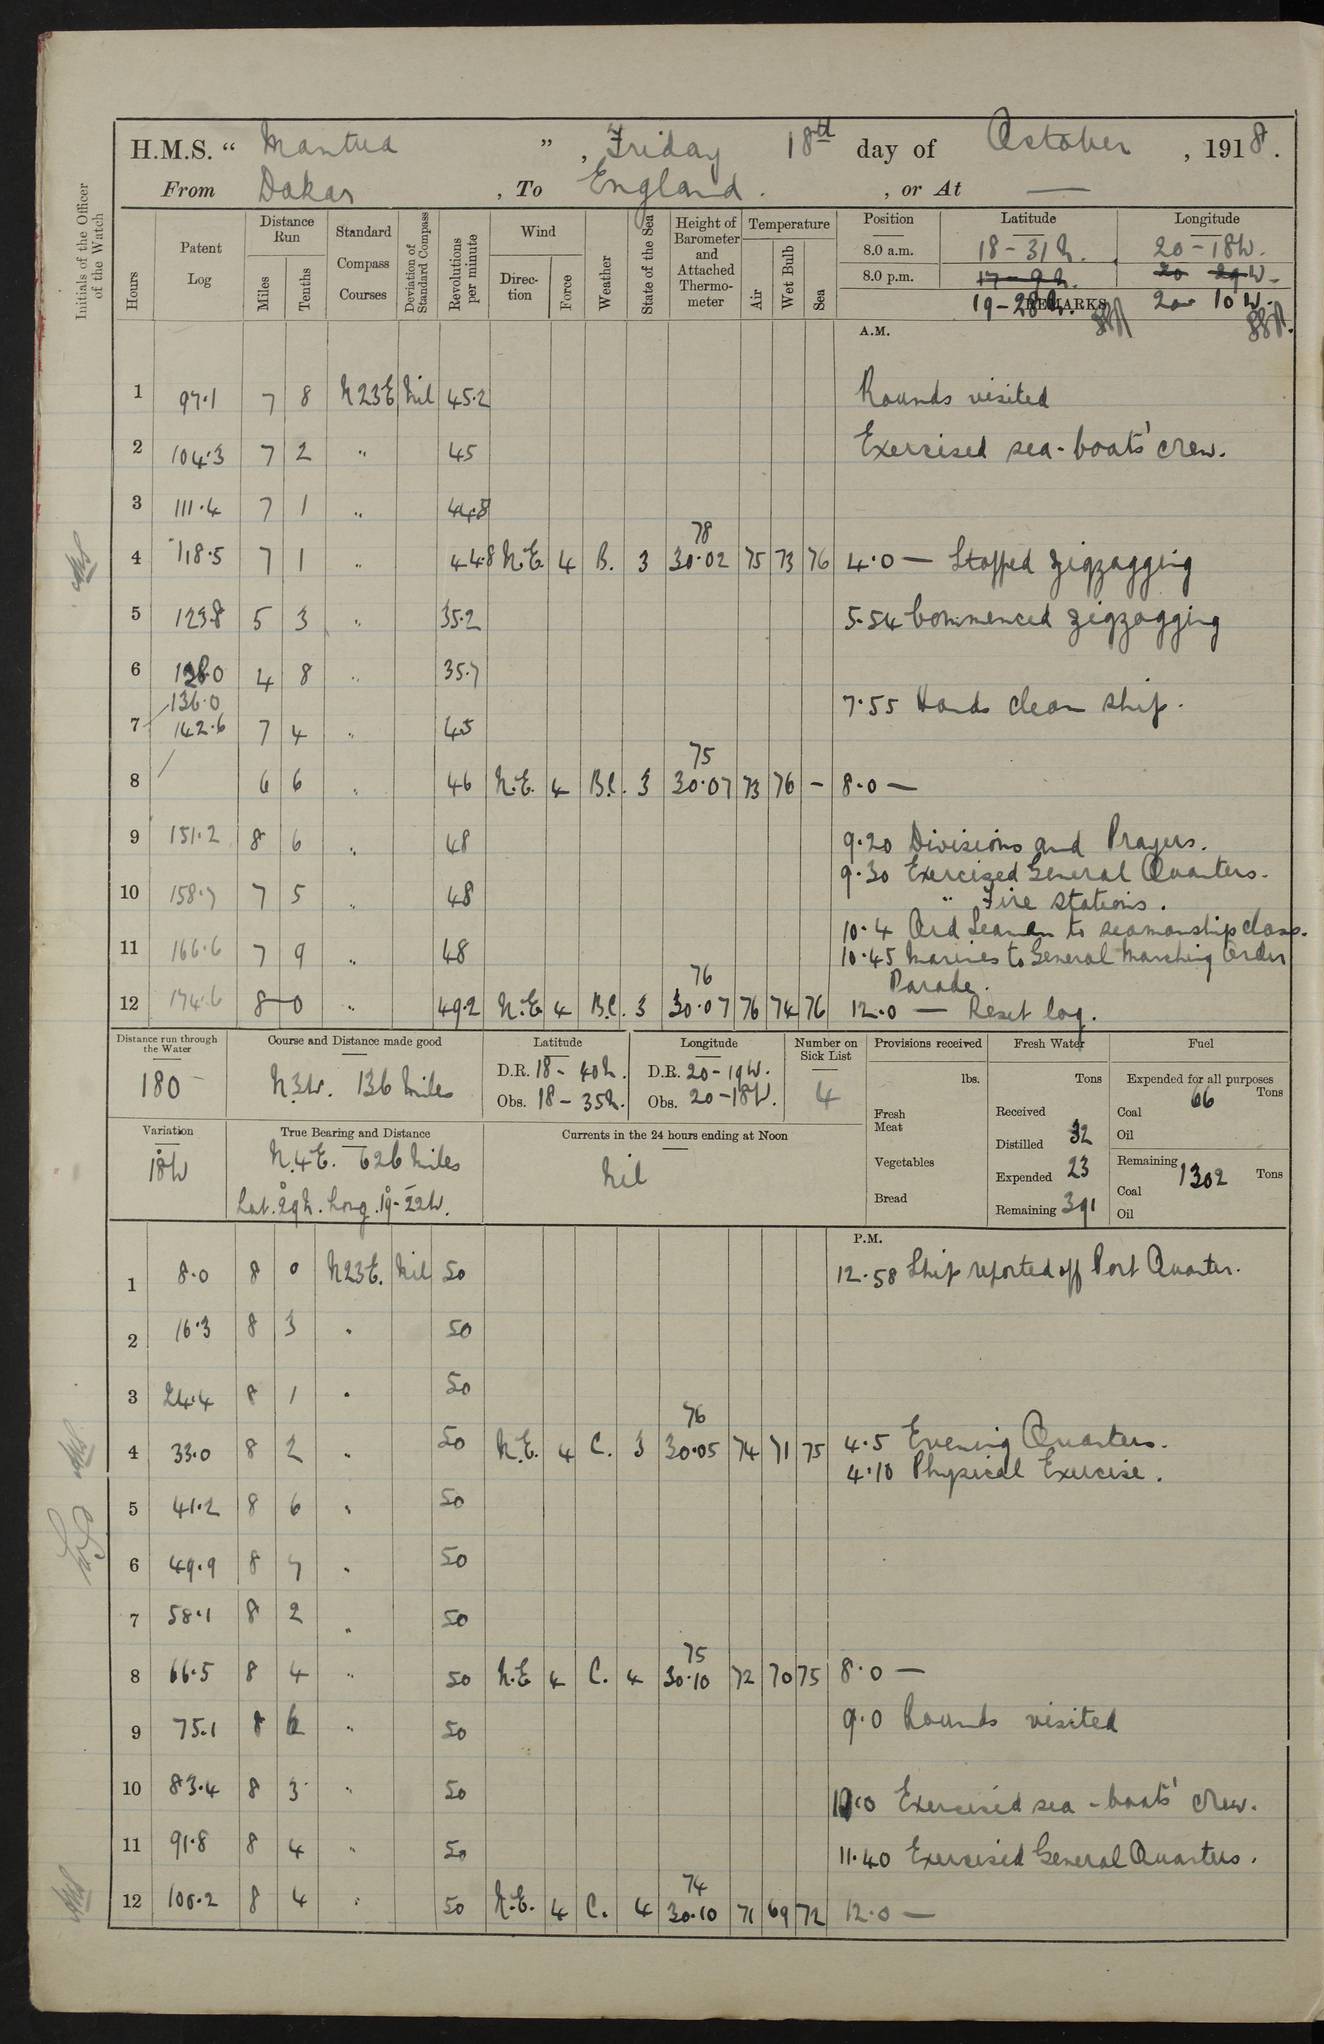 H.M.S. " Mantua ", Friday 18th day of October, 1918.
From Dakar, To England., or At —
Initials of the Officer of the Watch
Hours
Patent Log
Distance Run
Miles
Tenths
Standard Compass Courses
Deviation of Standard Compass
Revolutions per minute
Wind
Direction
Force
Weather
State of the Sea
Height of Barometer and Attached Thermometer
Temperature
Air
Wet Bulb
Sea
Position Latitude Longitude
8.0 a.m. 18 - 31 N. 20 - 18 W.
8.0 p.m. 17 - 9 N. 20 29 W.
REMARKS 19 - 28 N. 20 10 W.
A.M.
1 97.1 7 8 N23E Nil 45.2 Rounds visited
2 104.3 7 2 " 45 Exercised sea-boats' crew.
3 111.4 7 1 " 44.8
78
4 118.5 7 1 " 44.8 N.E. 4 B. 3 30.02 75 73 76 4.0 — Stopped zigzagging
5 123.8 5 3 " 35.2 5.54 Commenced zigzagging
6 128.0 4 8 " 35.7
136.0 7.55 Hands clean ship.
7 142.6 7 4 " 45
75
8 6 6 " 46 N.E. 4 B.C. 3 30.07 73 76 - 8.0 —
9 151.2 8 6 " 48 9.20 Divisions and Prayers.
9.30 Exercized General Quarters.
10 158.7 7 5 " 48 " Fire stations.
10.4 Ord Seamen to seamanship class.
11 166.6 7 9 " 48 10.45 Marines to General Marching Order
76 Parade.
12 174.6 8 0 " 49.2 N.E. 4 B.C. 3 30.07 76 74 76 12.0 — Reset log.
Distance run through the Water
180
Course and Distance made good
N3W. 136 Miles
Latitude
D.R. 18 - 40 N.
Obs. 18 - 35 N.
Longitude
D.R. 20 - 19 W.
Obs. 20 - 18 W.
Number on Sick List
4
Provisions received
lbs.
Fresh Meat
Vegetables
Bread
Fresh Water
Tons
Received
Distilled 32
Expended 23
Remaining 391
Fuel
Expended for all purposes
66 Tons
Coal
Oil
Remaining 1302 Tons
Coal
Oil
Variation
18°W
True Bearing and Distance
N.4E. 626 Miles
Lat. 29°N. Long. 19°-22W.
Currents in the 24 hours ending at Noon
Nil
P.M.
1 8.0 8 0 N23E. Nil 50 12.58 Ship reported off Port Quarter.
2 16.3 8 3 " 50
3 24.4 8 1 " 50
76
4 33.0 8 2 " 50 N.E. 4 C. 3 30.05 74 71 75 4.5 Evening Quarters.
4.10 Physical Exercise.
5 41.2 8 6 " 50
6 49.9 8 7 " 50
7 58.1 8 2 " 50
75
8 66.5 8 4 " 50 N.E 4 C. 4 30.10 72 70 75 8.0 —
9 75.1 8 6 " 50 9.0 Rounds visited
10 83.4 8 3 " 50 10.0 Exercised sea-boats' crew.
11 91.8 8 4 " 50 11.40 Exercised General Quarters.
74
12 100.2 8 4 " 50 N.E. 4 C. 4 30.10 71 69 72 12.0 —